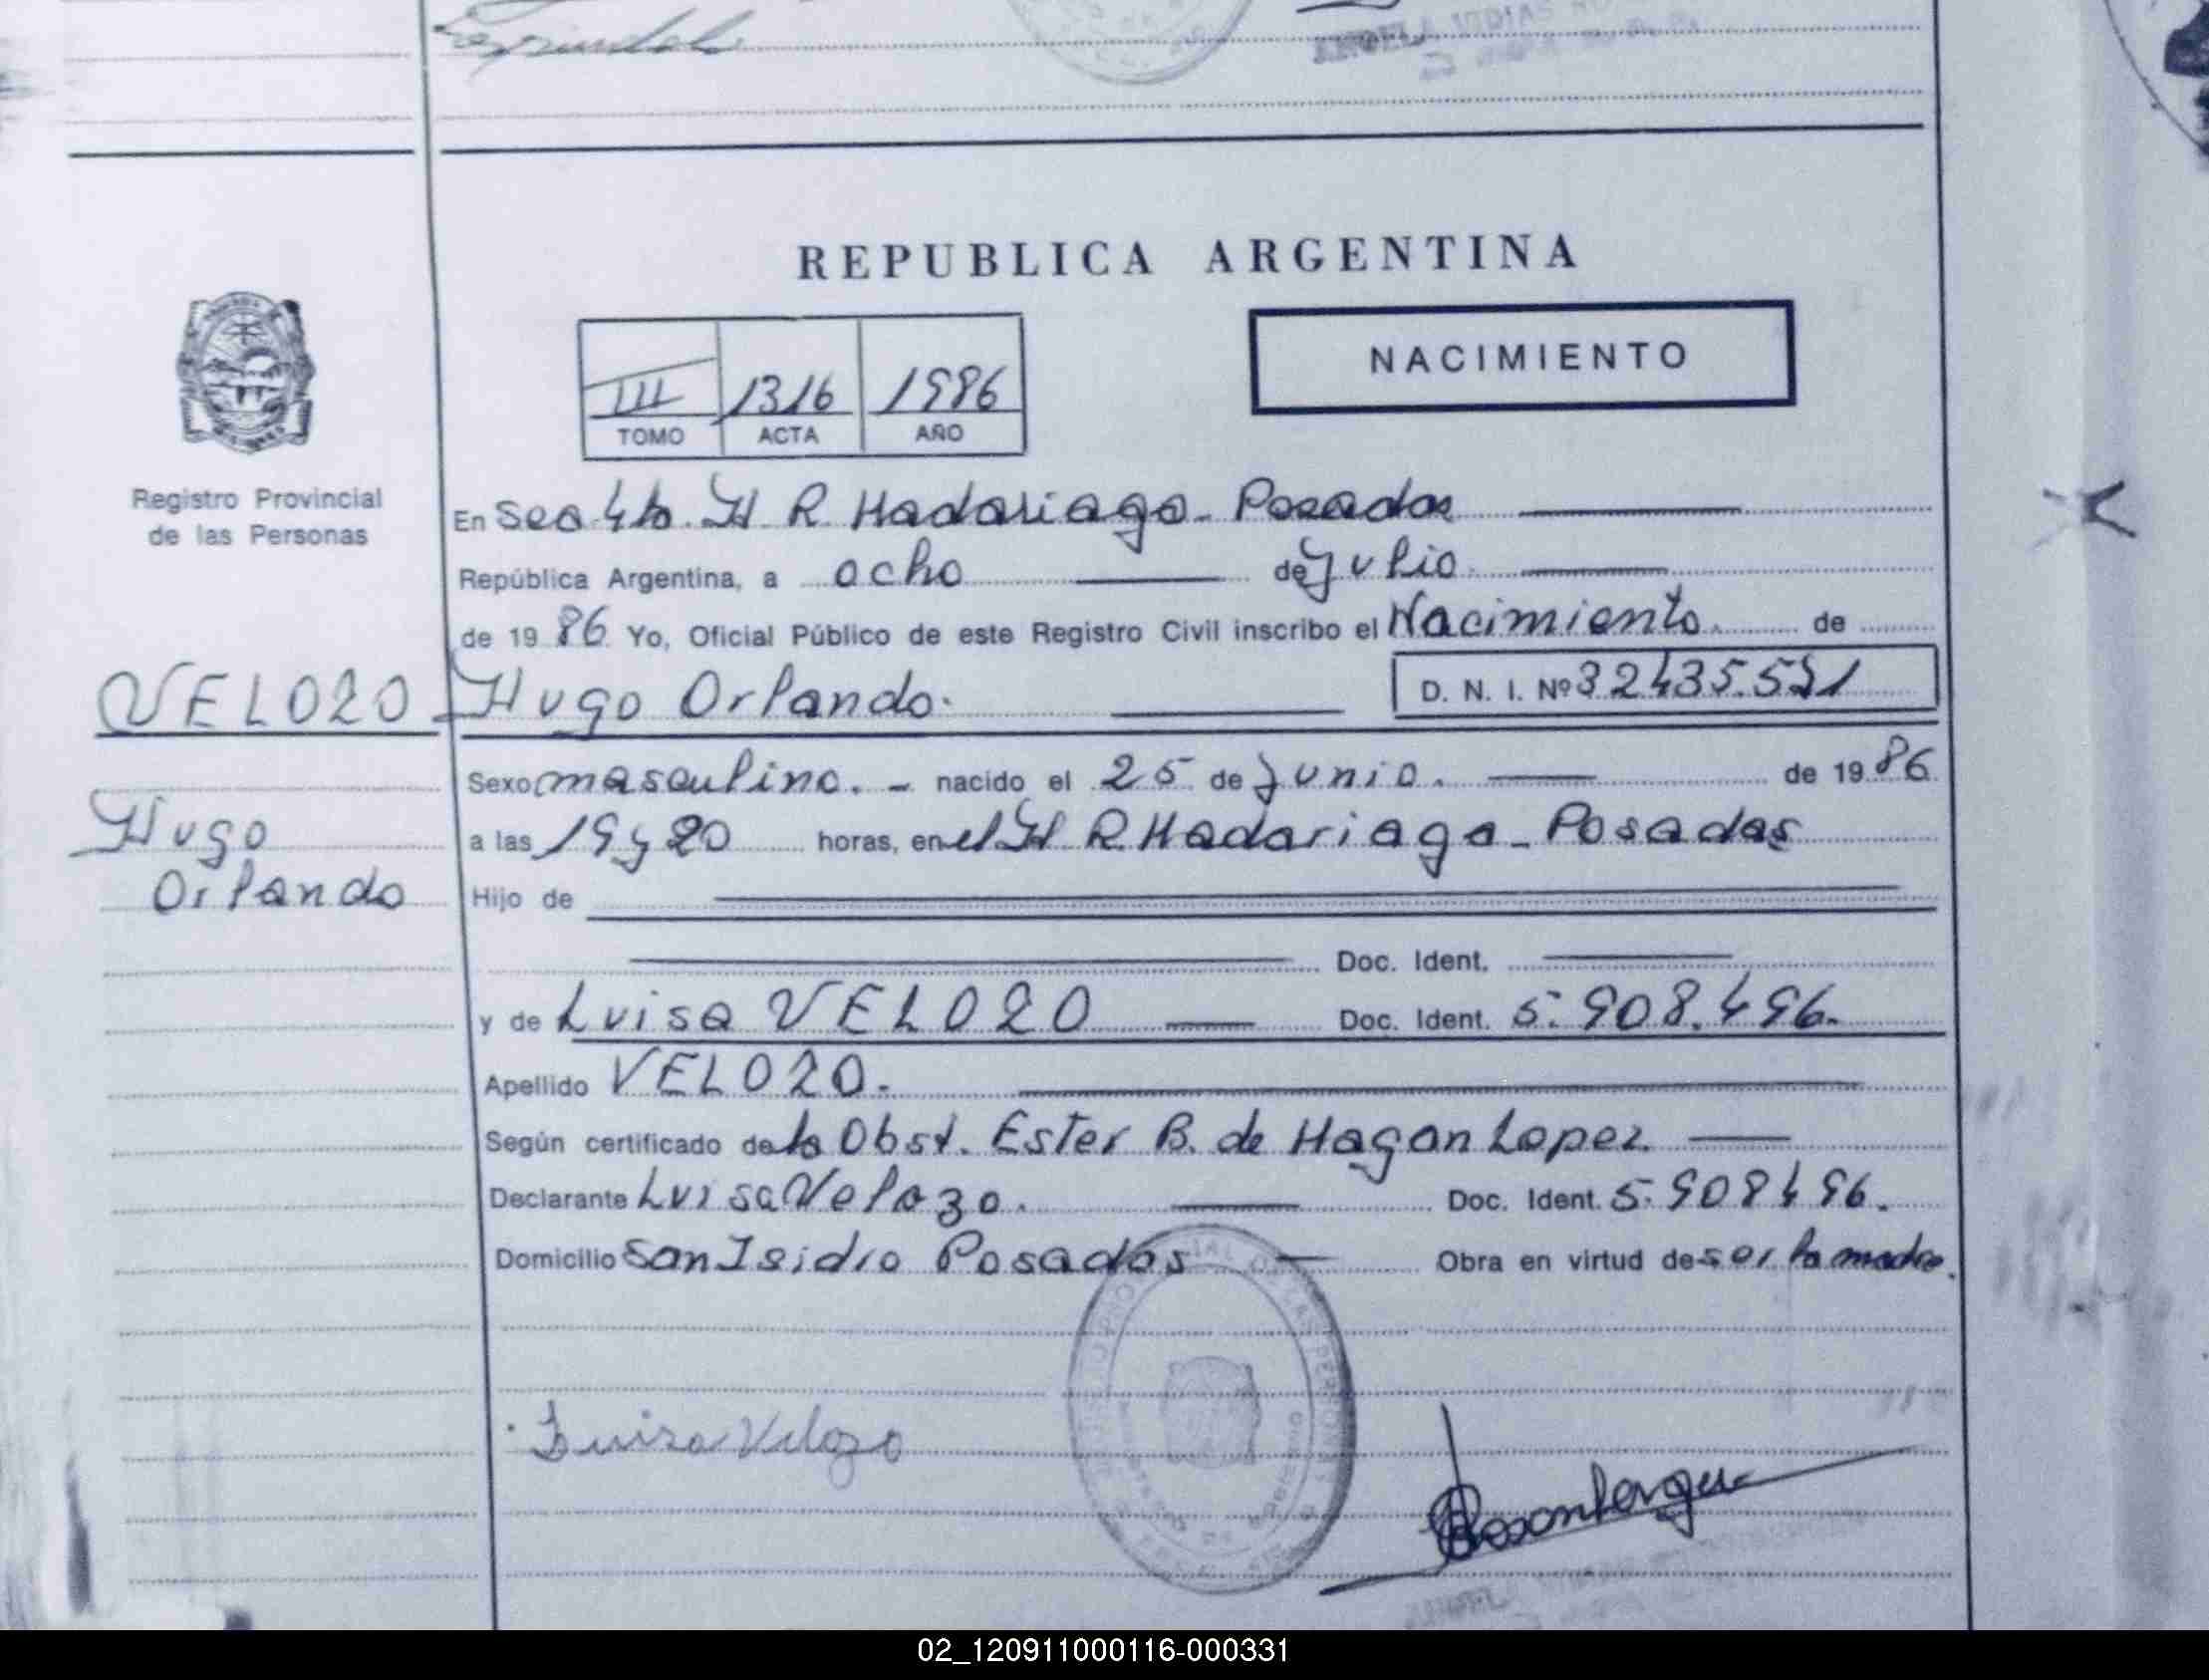 REPUBLICA ARGENTINA
NACIMIENTO
III 1316 1986
TOMO ACTA AÑO
Registro Provincial
de las Personas
En Sec 4ta. H R Madariaga - Posadas
República Argentina, a ocho de Julio
de 1986 Yo, Oficial Público de este Registro Civil inscribo el Nacimiento de
VELOZO Hugo Orlando. D. N. I. Nº 32.435.551
Sexo masculino. - nacido el 25 de Junio. de 1986
Hugo
Orlando
a las 19 y 20 horas, en el H R. Madariaga - Posadas
Hijo de
Doc. Ident.
y de Luisa VELOZO Doc. Ident. 5.908.496.
Apellido VELOZO.
Según certificado de la Obst. Ester B. de Hagan Lopez
Declarante Luisa Velozo. Doc. Ident. 5.908496.
Domicilio San Isidro Posadas Obra en virtud de ser la madre.
Luisa Velozo
02_120911000116-000331